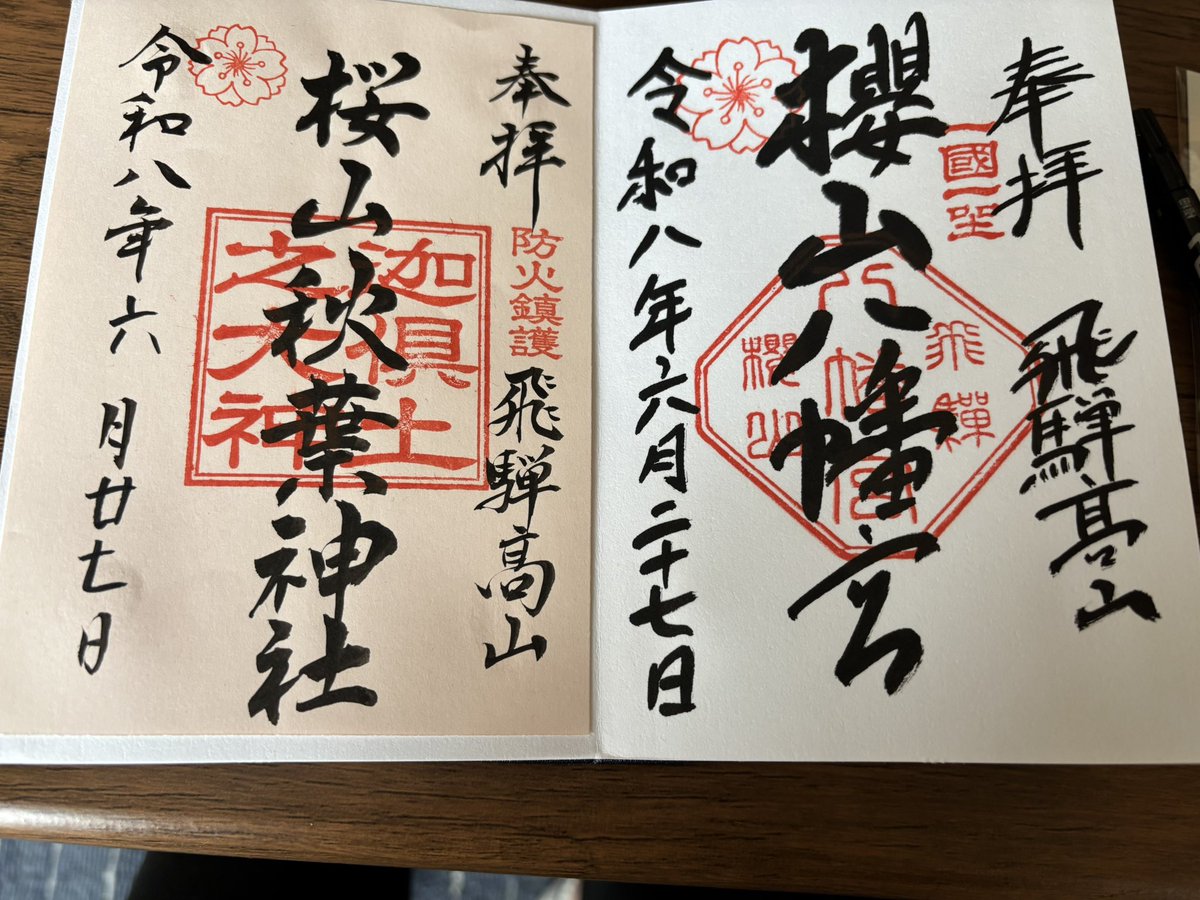 奉拝
飛騨高山
一國一社
櫻山八幡宮
飛騨
八幡宮
櫻山
令和八年六月二十七日
奉拝
防火鎮護
飛騨高山
桜山秋葉神社
迦倶土
之大神
令和八年六月廿七日